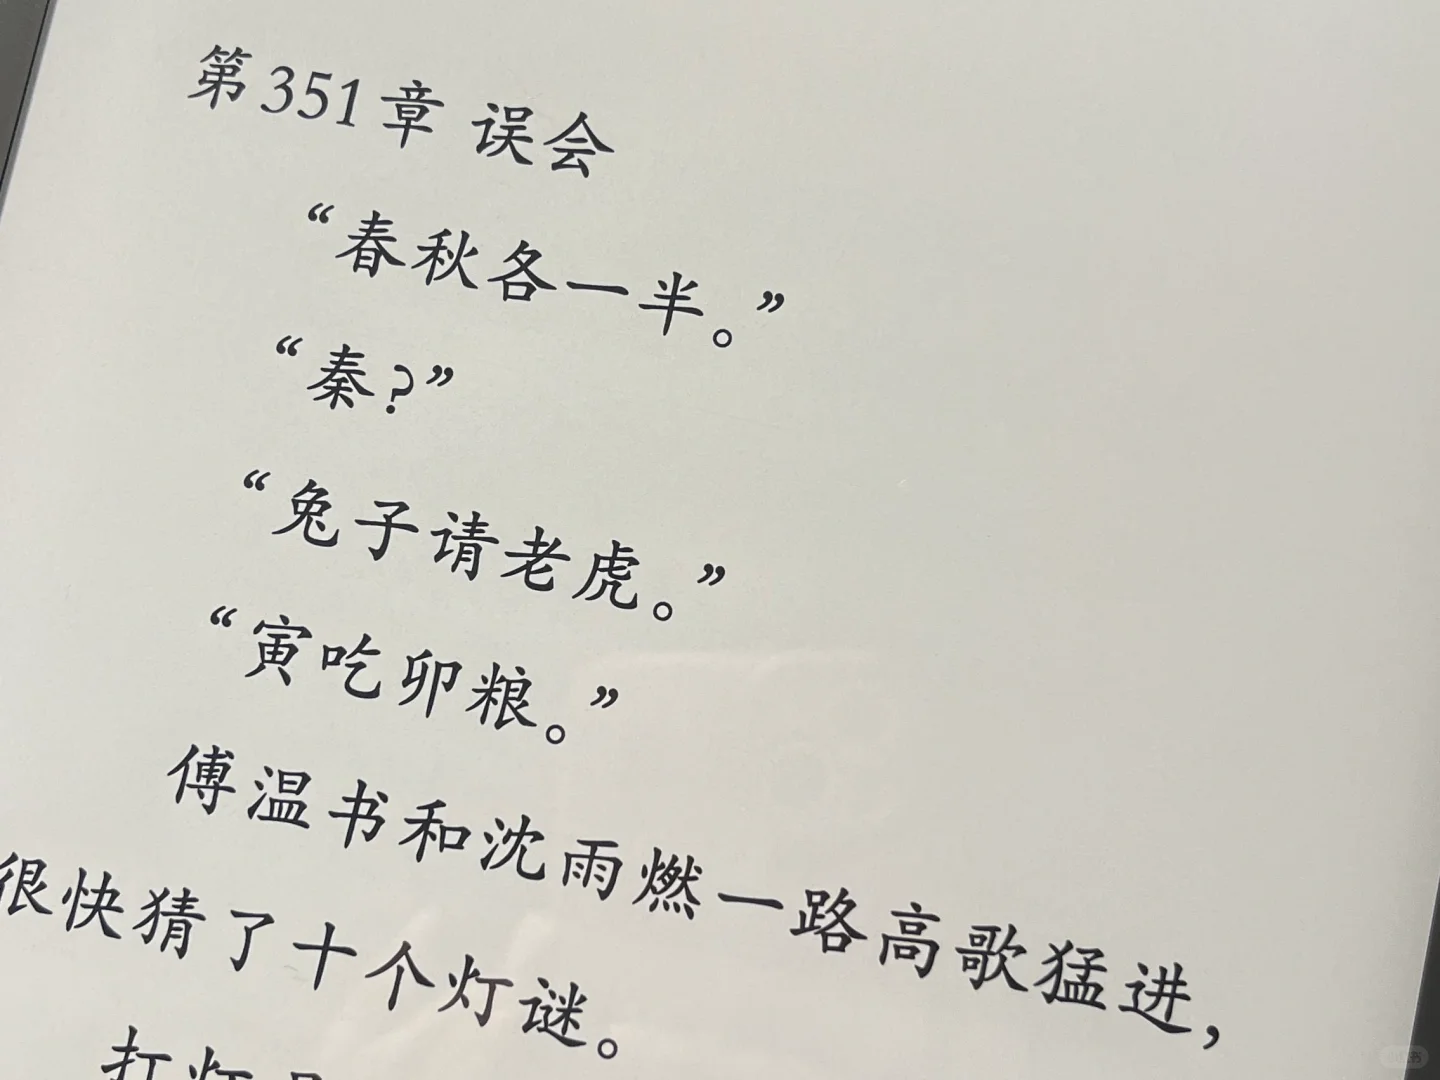 第351章 误会
“春秋各一半。”
“秦?”
“兔子请老虎。”
“寅吃卯粮。”
傅温书和沈雨燃一路高歌猛进,
很快猜了十个灯谜。
打灯